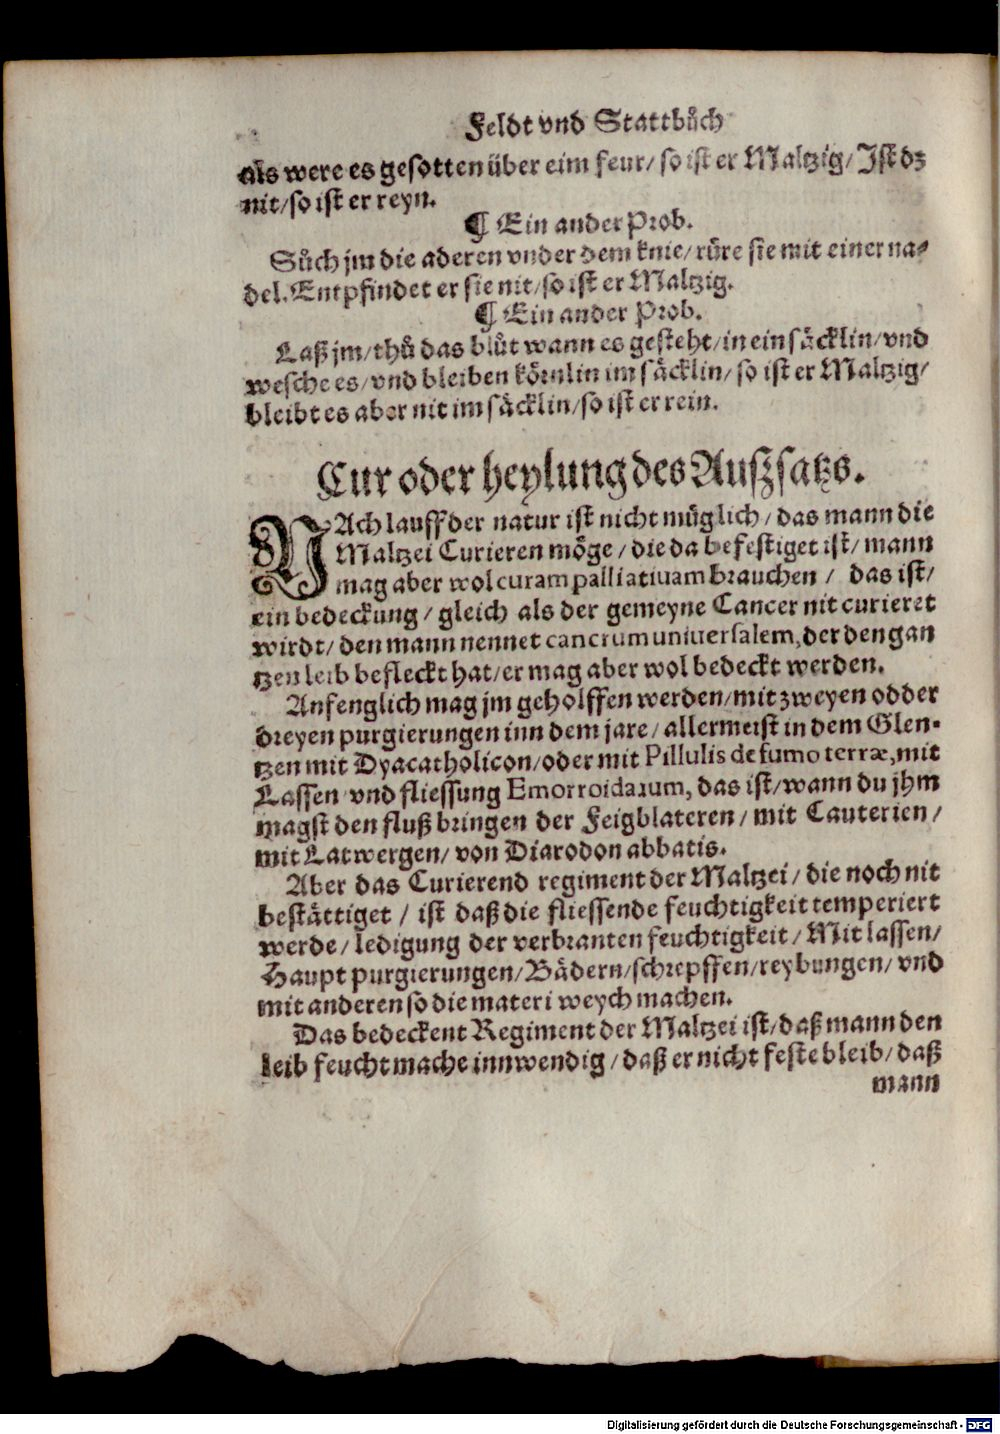 Feldt vnd Stattbůch
als were es gesotten über eim feur/ so ist er Maltzig/ Ist dz
nit/ so ist er reyn.
¶ Ein ander Prob.
Sůch jm die aderen vnder dem knie/ růre sie mit einer na⸗
del. Entpfindet er sie nit/ so ist er Maltzig.
¶ Ein ander Prob.
Laß jm/ thů das blůt wann es gesteht/ in ein säcklin/ vnd
wesche es/ vnd bleiben körnlin im säcklin/ so ist er Maltzig/
bleibt es aber nit im säcklin/ so ist er rein.
Cur oder heylung des Außsatzs.
NAch lauff der natur ist nicht müglich/ das mann die
Maltzei Curieren möge/ die da befestiget ist/ mann
mag aber wol curam palliatiuam brauchen/ das ist/
ein bedeckung/ gleich als der gemeyne Cancer nit curieret
wirdt/ den mann nennet cancrum uniuersalem, der den gan
tzen leib befleckt hat/ er mag aber wol bedeckt werden.
Anfenglich mag jm geholffen werden/ mit zweyen odder
dreyen purgierungen inn dem jare/ allermeist in dem Glen⸗
tzen mit Dyacatholicon/ oder mit Pillulis de fumo terræ, mit
Lassen vnd fliessung Emorroidarum, das ist/ wann du jhm
magst den fluß bringen der Feigblateren/ mit Cauterien/
mit Latwergen/ von Diarodon abbatis.
Aber das Curierend regiment der Maltzei/ die noch nit
bestättiget/ ist daß die fliessende feuchtigkeit temperiert
werde/ ledigung der verbranten feuchtigkeit/ Mit lassen/
Haupt purgierungen/ Bädern/ schrepffen/ reybungen/ vnd
mit anderen so die materi weych machen.
Das bedeckent Regiment der Maltzei ist/ daß mann den
leib feucht mache innwendig/ daß er nicht feste bleib/ daß
mann
Digitalisierung gefördert durch die Deutsche Forschungsgemeinschaft - DFG